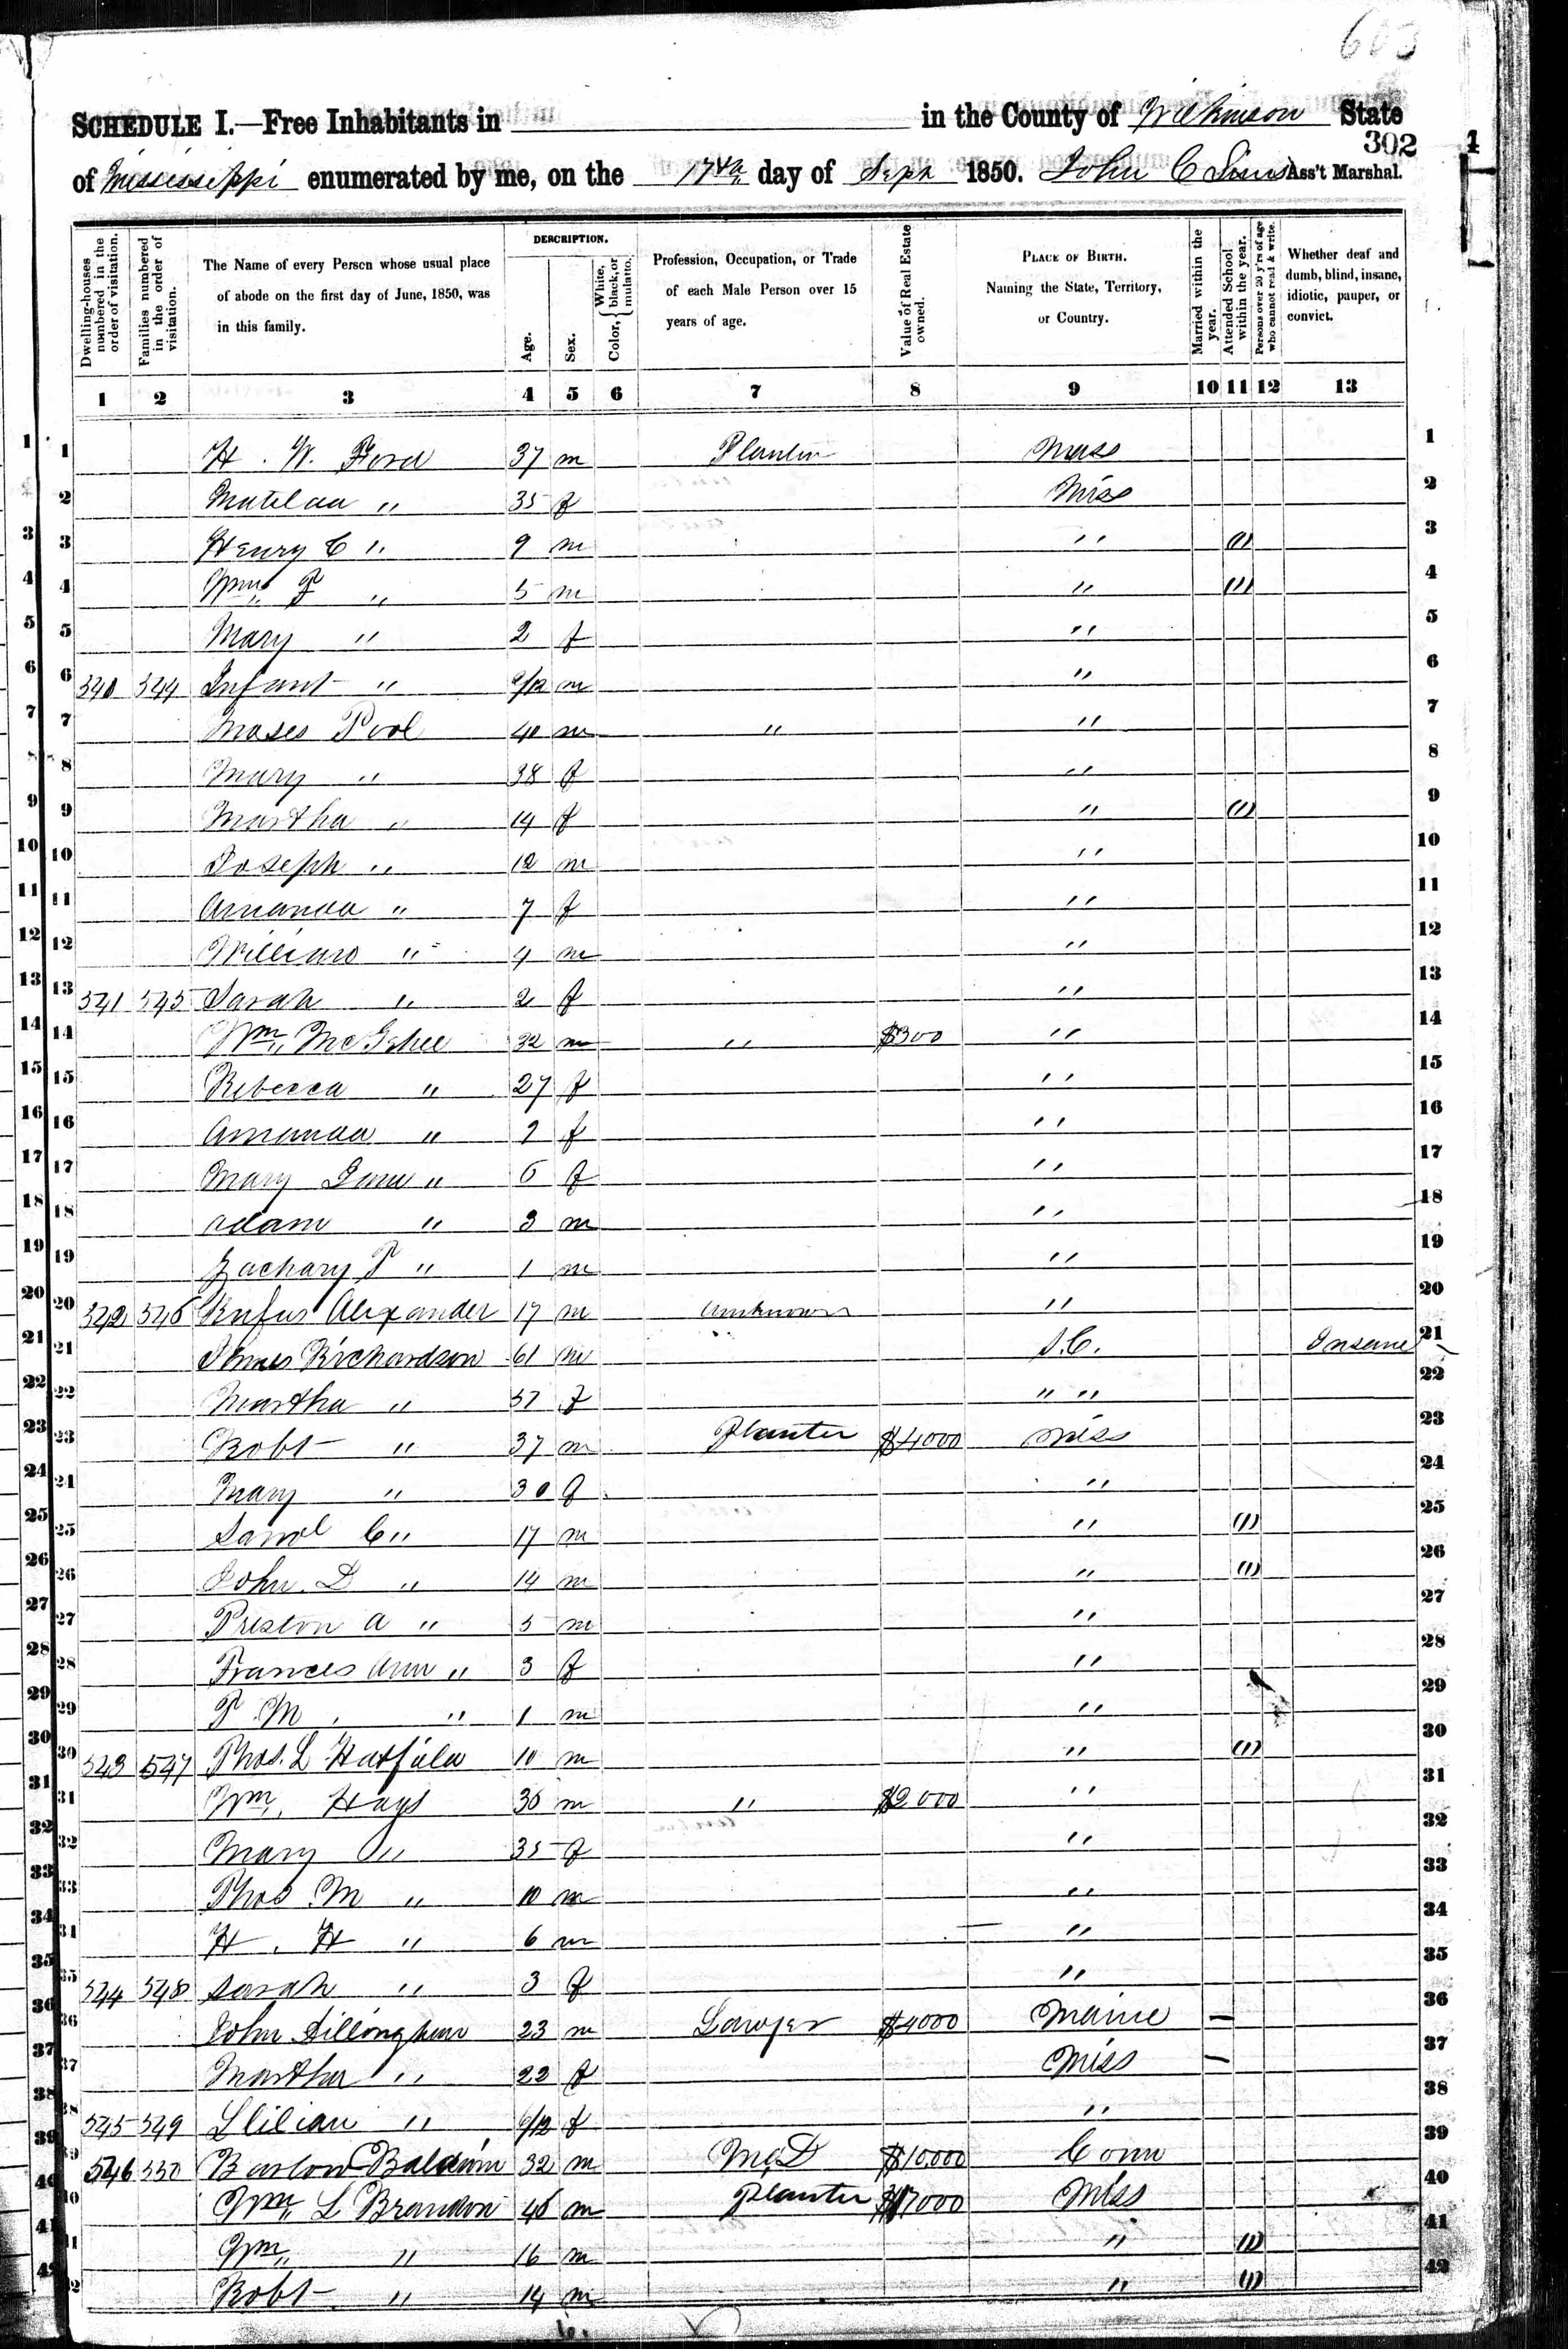 603
SCHEDULE I.—Free Inhabitants in in the County of Wilkinson State
302
of Mississippi enumerated by me, on the 17th day of Sept 1850. John C Sims Ass't Marshal.
Dwelling-houses numbered in the order of visitation.
Families numbered in the order of visitation.
The Name of every Person whose usual place of abode on the first day of June, 1850, was in this family.
DESCRIPTION.
Age.
Sex.
Color, { White, black, or mulatto.
Profession, Occupation, or Trade of each Male Person over 15 years of age.
Value of Real Estate owned.
PLACE OF BIRTH. Naming the State, Territory, or Country.
Married within the year.
Attended School within the year.
Persons over 20 y'rs of age who cannot read & write.
Whether deaf and dumb, blind, insane, idiotic, pauper, or convict.
1 2 3 4 5 6 7 8 9 10 11 12 13
1 H. W. Ford 37 m Planter Mass 1
2 Matilda " 35 f Miss 2
3 Henry C " 9 m " (1) 3
4 Wm F " 5 m " (1) 4
5 Mary " 2 f " 5
6 540 544 Infant " m " 6
7 Moses Pool 40 m " " 7
8 Mary " 38 f " 8
9 Martha " 14 f " (1) 9
10 Joseph " 12 m " 10
11 Amanda " 7 f " 11
12 William " 4 m " 12
13 541 545 Sarah " 2 f " 13
14 Wm McGehee 32 m " $300 " 14
15 Rebecca " 27 f " 15
16 Amanda " f " 16
17 Mary Jane " f " 17
18 Adam " 3 m " 18
19 Zachary T " 1 m " 19
20 542 546 Rufus Alexander 17 m Unknown " 20
21 James Richardson 61 m S.C. Insane 21
22 Martha " 57 f " " 22
23 Robt " 37 m Planter $4000 Miss 23
24 Mary " 30 f " 24
25 Saml C " 17 m " (1) 25
26 John D " 14 m " (1) 26
27 Preston A " 5 m " 27
28 Frances Ann " 3 f " 28
29 T. M. " 1 m " 29
30 543 547 Thos. L Hatfield 10 m " (1) 30
31 Wm Hays 36 m " $2000 " 31
32 Mary " 35 f " 32
33 Thos M " 10 m " 33
34 H. H " 6 m " 34
35 544 548 Sarah " 3 f " 35
36 John Dillingham 23 m Lawyer $4000 Maine — 36
37 Martha " 22 f Miss — 37
38 545 549 Llilian " 6/12 f " 38
39 546 550 Barlow Baldwin 32 m M.D $10,000 Conn 39
40 Wm L Brandon 46 m Planter Miss 40
41 Wm " 16 m " (1) 41
42 Robt " 14 m " (1) 42